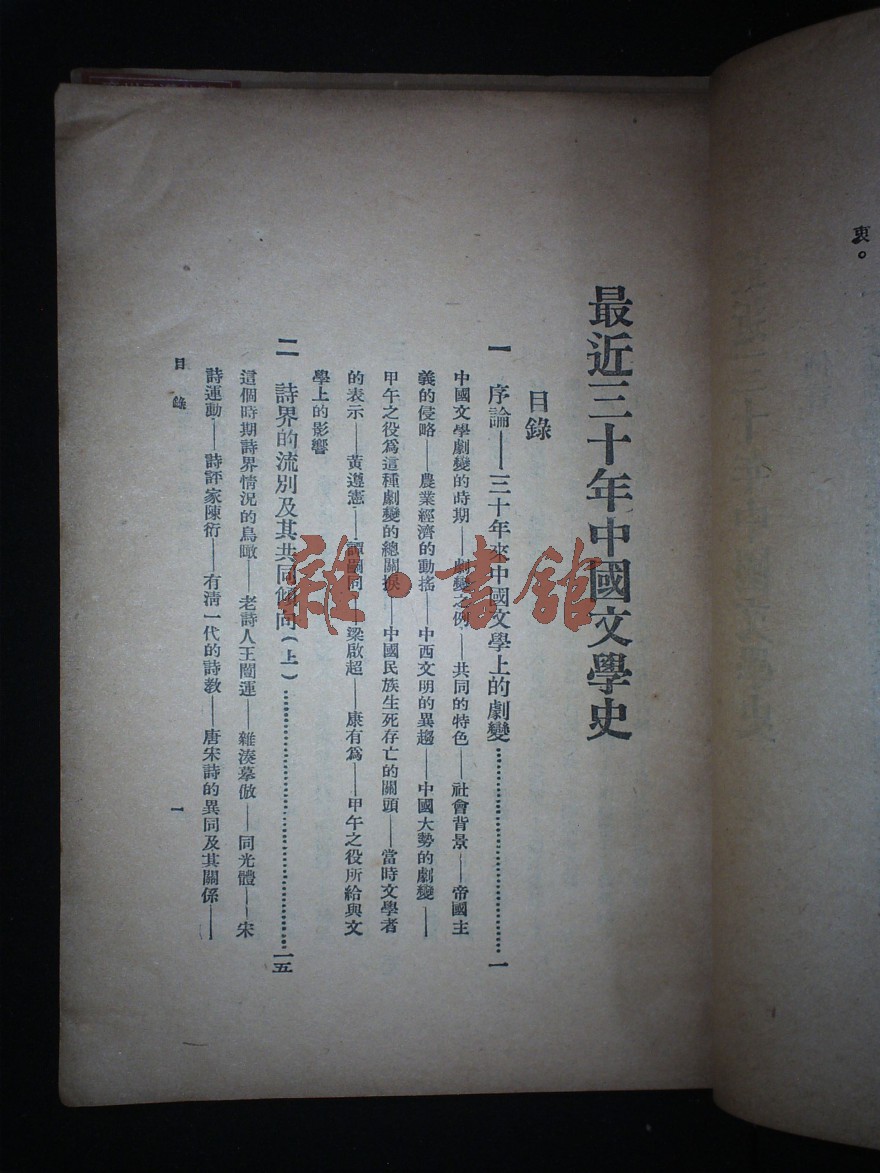 衷。
最近三十年中國文學史
目錄
一 序論——三十年來中國文學上的劇變……………………一
中國文學劇變的時期——劇變之例——共同的特色——社會背景——帝國主
義的侵略——農業經濟的動搖——中西文明的異趨——中國大勢的劇變——
甲午之役爲這種劇變的總關捩——中國民族生死存亡的關頭——當時文學者
的表示——黃遵憲——譚嗣同——梁啟超——康有爲——甲午之役所給與文
學上的影響
二 詩界的流別及其共同傾向(上)……………………一五
這個時期詩界情況的鳥瞰——老詩人王闓運——雜湊摹倣——同光體——宋
詩運動——詩評家陳衍——有淸一代的詩教——唐宋詩的異同及其關係——
目錄
一
雜·書館